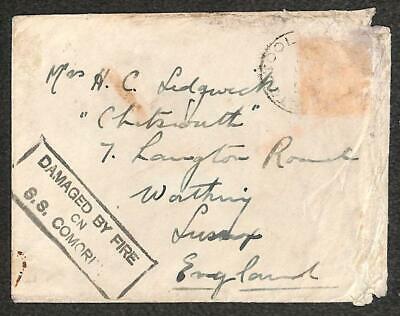 Mrs H. C. Sedgwick
"Chetsworth"
7. Langton Road
Worthing
Sussex
England
DAMAGED BY FIRE
ON
S.S. COMORI